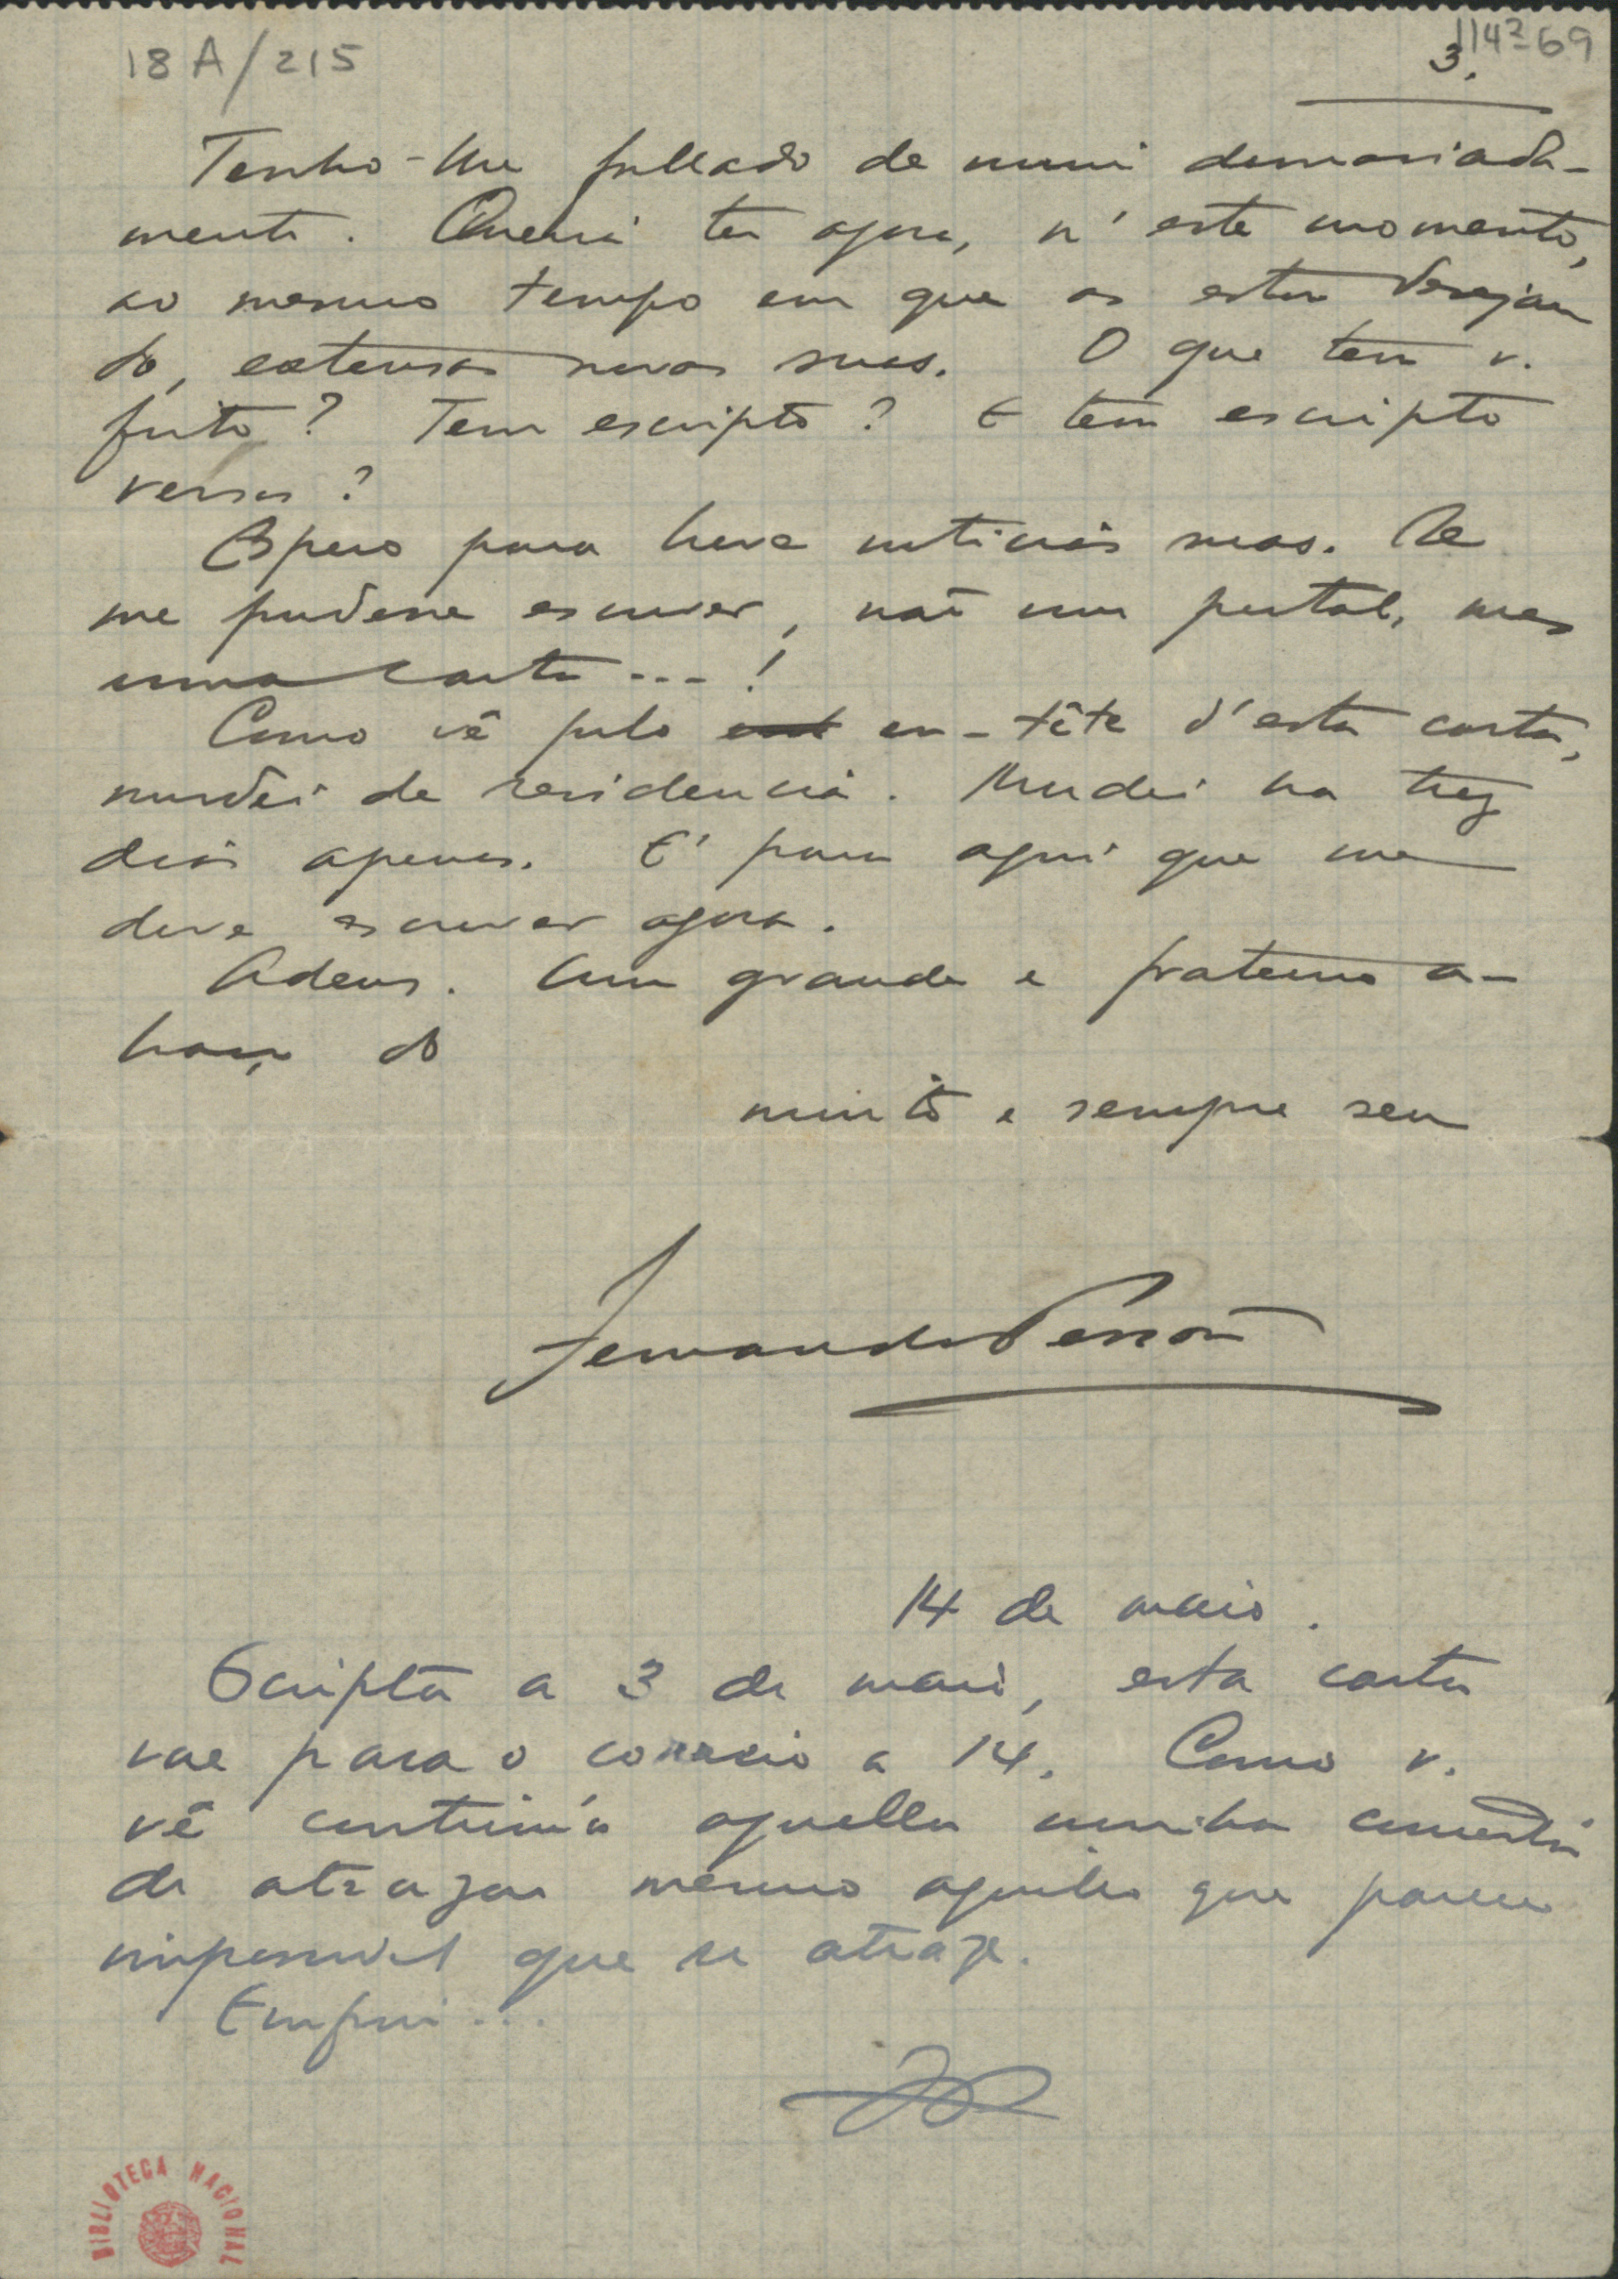 18 A/215
114²-69
3.
Tenho-lhe fallado de mim demasiada-
mente. Queria ter agora, n'este momento,
ao mesmo tempo em que as estou desejan
do, extensas novas suas. O que tem v.
feito? Tem escripto? E tem escripto
versos?
Espero para breve noticias suas. Se
me pudesse escrever, não um postal, mas
uma carta...!
Como vê pelo en-tête d'esta carta,
mudei de residencia. Mudei ha trez
dias apenas. E' para aqui que me
deve escrever agora.
Adeus. Um grande e fraterno a-
braço do
muito e sempre seu
Fernando Pessôa
14 de maio.
Escripta a 3 de maio, esta carta
vae para o correio a 14. Como v.
vê continúa aquella minha
de atrazar mesmo aquillo que parece
impossivel que se atraze.
Emfim...
BIBLIOTECA NACIONAL